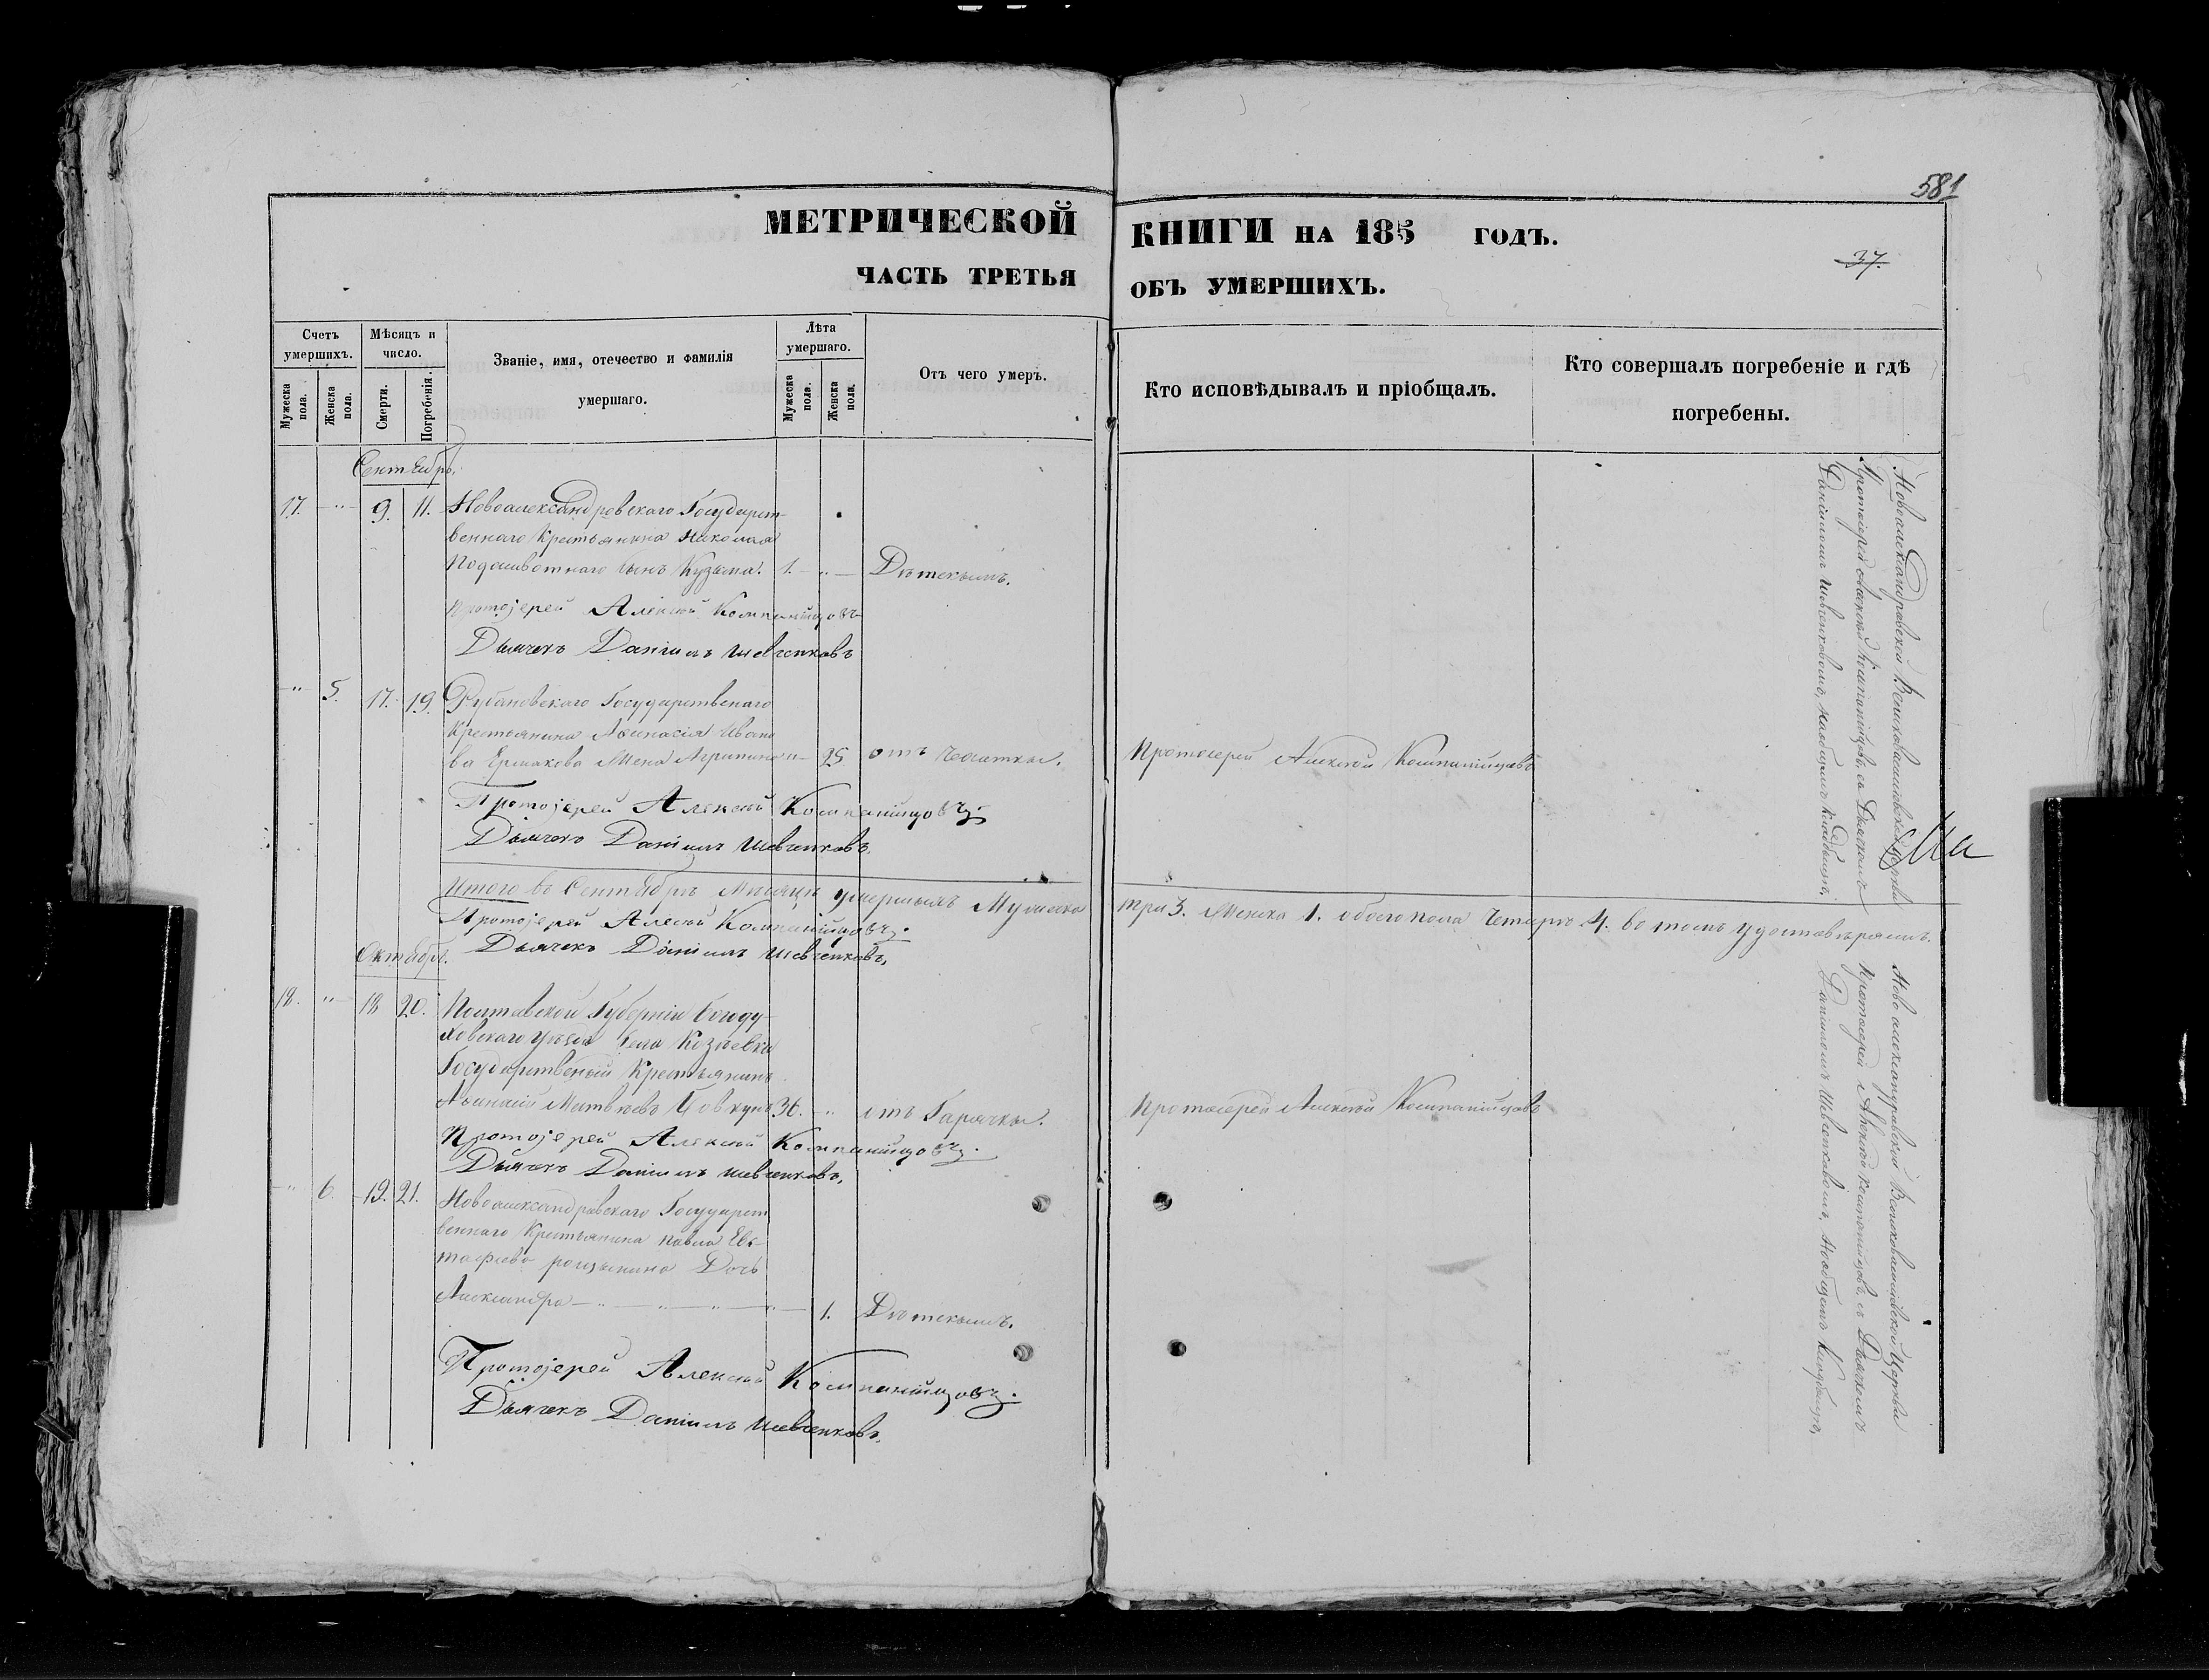 581
МЕТРИЧЕСКОЙ КНИГИ НА 185 ГОДЪ.
37.
ЧАСТЬ ТРЕТЬЯ ОБЪ УМЕРШИХЪ.
Счетъ умершихъ.
Мужеска пола.
Женска пола.
Мѣсяцъ и число.
Смерти.
Погребенія.
Званіе, имя, отечество и фамилія умершаго.
Лѣта умершаго.
Мужеска пола.
Женска пола.
Отъ чего умеръ.
Кто исповѣдывалъ и пріобщалъ.
Кто совершалъ погребеніе и гдѣ погребены.
Сентябрь.
17. — " — 9. 11. Новоалександровскаго Государст-
веннаго Крестьянина Николая
Подошвотнаго Сынъ Кузьма. 1. — " —
Протоjерей Алексѣй Компанійцовъ
Дьячекъ Даніилъ Шевченковъ
" 5. 17. 19. Рубановскаго Государственаго
Крестьянина Аѳанасія Ивано
ва Ермакова Жена Агрипина — " — 25 отъ
Протоіерей Алексѣй Компанійцовъ
Протоjерей Алексѣй Компанійцовъ
Дьячекъ Даніилъ Шевченковъ.
Новоалександровской церкви
Протоіерей Алексѣй Компанійцовъ, съ Дьячкомъ
Даніиломъ Шевченковомъ, на общемъ кладбищѣ,
Итого въ Сентябрѣ Месяцѣ умершихъ Мужеска три 3. Женска 1. обоего пола Четыре 4. въ томъ удостовѣряемъ.
Протоjерей Алексѣй Компанійцовъ.
Дьячекъ Даніилъ Шевченковъ,
Октябрь.
18. " — 18 20. Полтавской Губерніи Богоду-
ховскаго уѣзда Села Козѣевки
Государственый Крестьянинъ
Аѳанасій Матвѣевъ 36. — " отъ Гарячки.
Протоіерей Алексѣй Компанійцовъ
Протоjерей Алексѣй Компанійцовъ.
Дьячекъ Даніилъ Шевченковъ,
— " 6. 19. 21. Новоалександровскаго Государст
веннаго Крестьянина Павла Евс-
тафіева Дочь
Александра — " — " — " — " — 1.
Протоjерей Алексѣй Компанійцовъ.
Дьячекъ Даніилъ Шевченковъ.
Ново александровской церкви
Протоіерей Алексѣй Компанійцовъ, съ Дьячкомъ
Даніиломъ Шевченковомъ, на общемъ кладбищѣ,